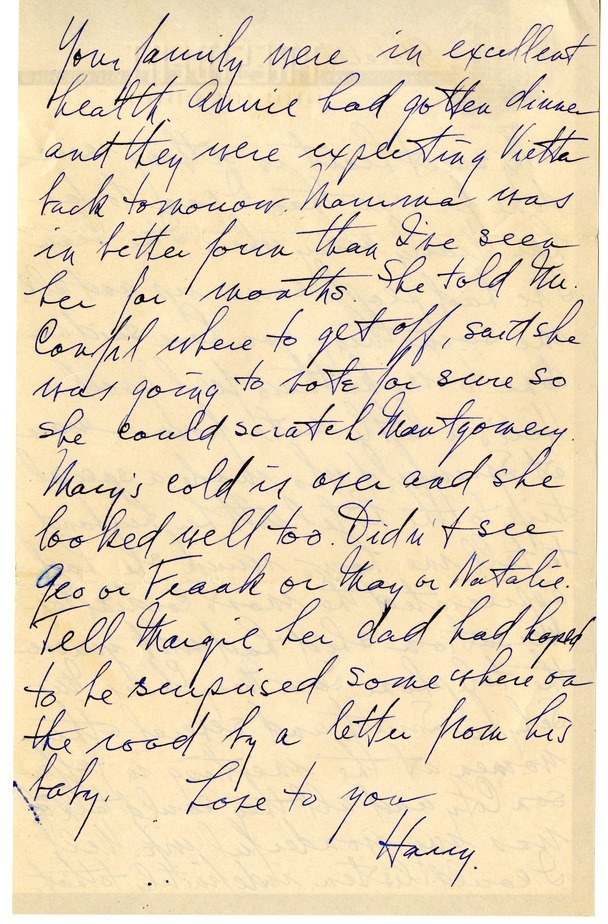 Your family were in excellent
health. Annie had gotten dinner
and they were expecting Vietta
back tomorrow. Mamma was
in better form than I've seen
her for months. She told Mr.
where to get off, said she
was going to vote for sure so
she could scratch Montgomery.
Mary's cold is over and she
looked well too. Didn't see
Geo or Frank or May or Natalie.
Tell Margie her dad had hoped
to be surprised somewhere on
the road by a letter from his
baby. Love to you
Harry.